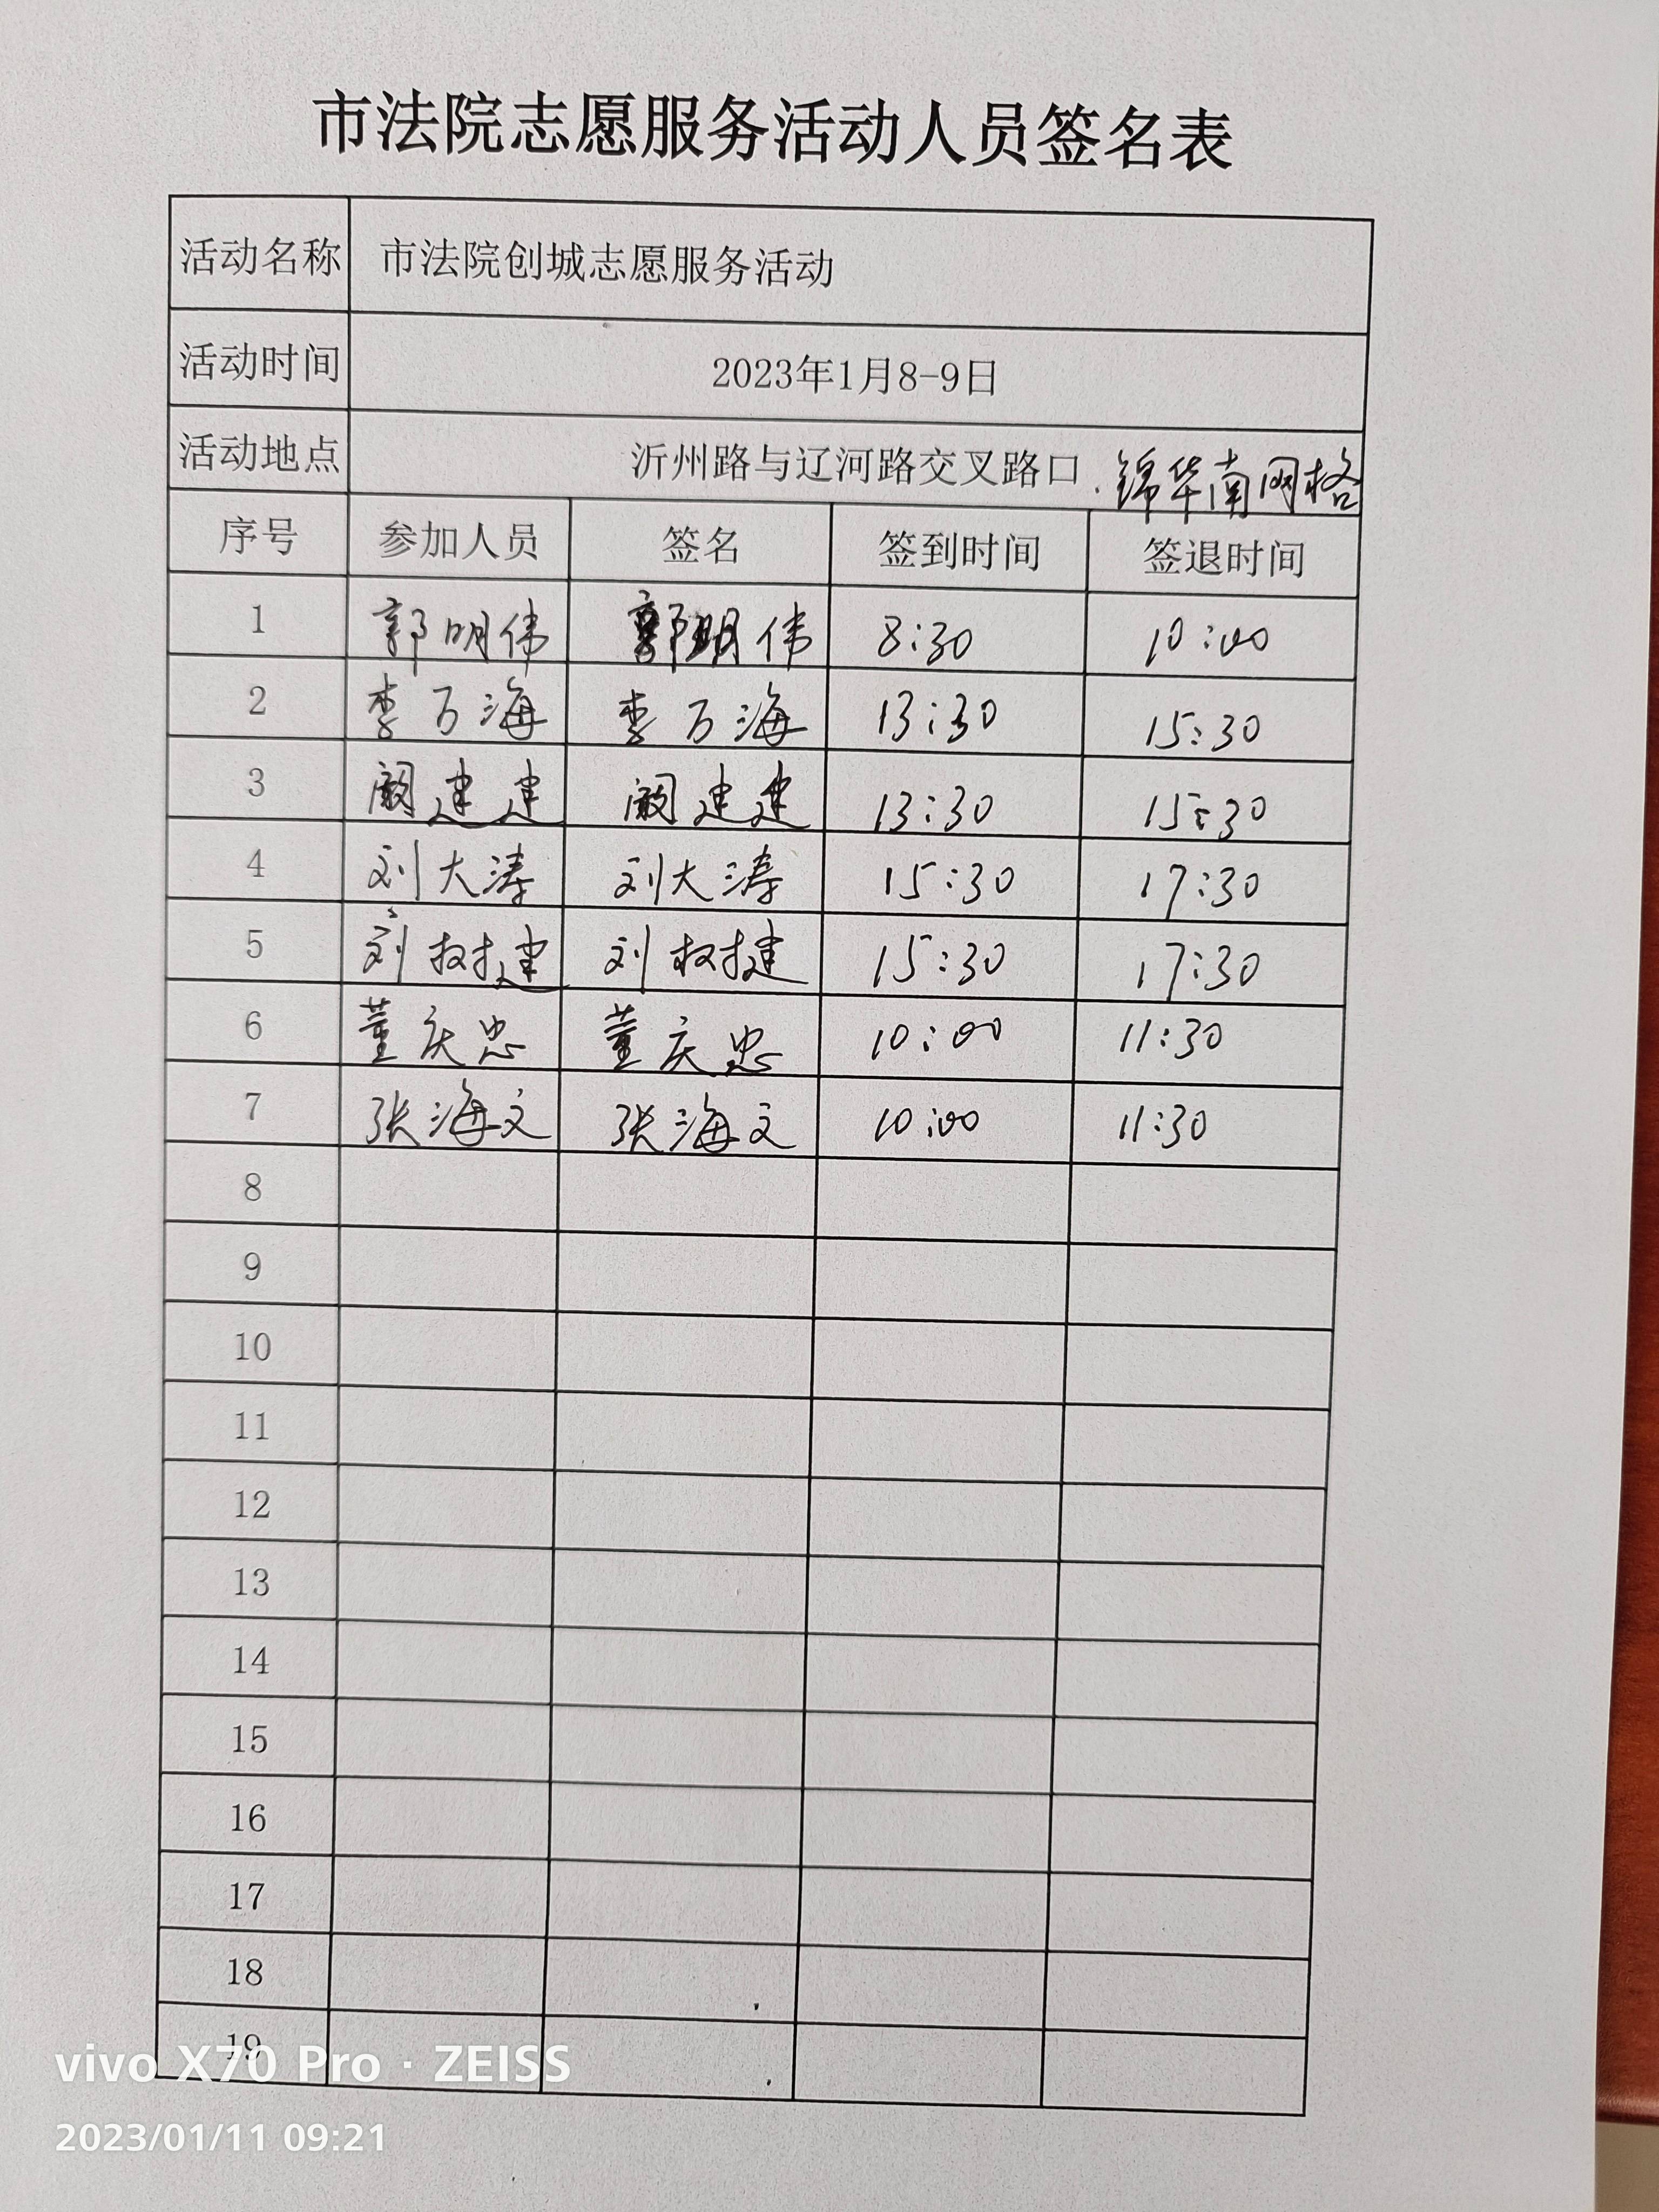 市法院志愿服务活动人员签名表
活动名称 市法院创城志愿服务活动
活动时间 2023年1月8-9日
活动地点 沂州路与辽河路交叉路口.锦华南网格
序号 参加人员 签名 签到时间 签退时间
1 郭明伟 郭明伟 8:30 10:00
2 李万海 李万海 13:30 15:30
3 阚建建 阚建建 13:30 15:30
4 刘大涛 刘大涛 15:30 17:30
5 刘树建 刘树建 15:30 17:30
6 董庆忠 董庆忠 10:00 11:30
7 张海文 张海文 10:00 11:30
8
9
10
11
12
13
14
15
16
17
18
19
vivo X70 Pro · ZEISS
2023/01/11 09:21